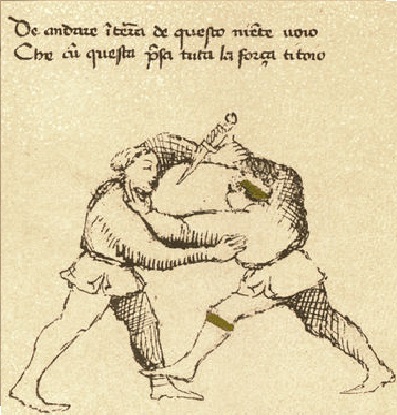 De andare ī tera de questo niēte uoio
Che cū questa p̃sa tuta la força ti toio